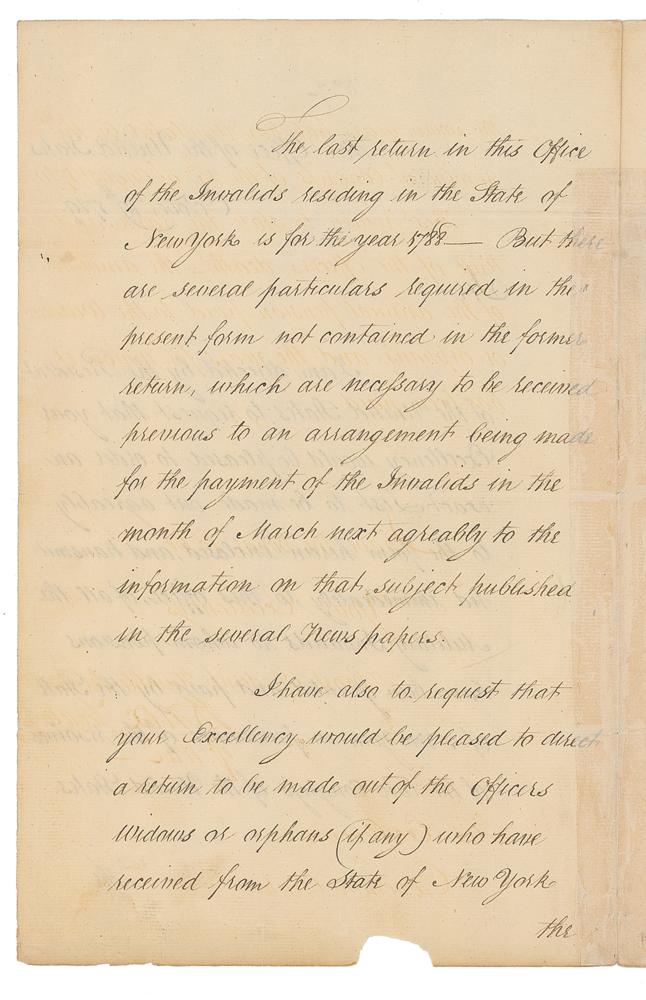 The last return in this Office
of the Invalids residing in the State of
New York is for the year 1788— But there
are several particulars required in the
present form not contained in the former
return, which are necessary to be received
previous to an arrangement being made
for the payment of the Invalids in the
month of March next agreably to the
information on that subject published
in the several News papers.
I have also to request that
your Excellency would be pleased to direct
a return to be made out of the Officers
widows or orphans (if any) who have
received from the State of New York
the